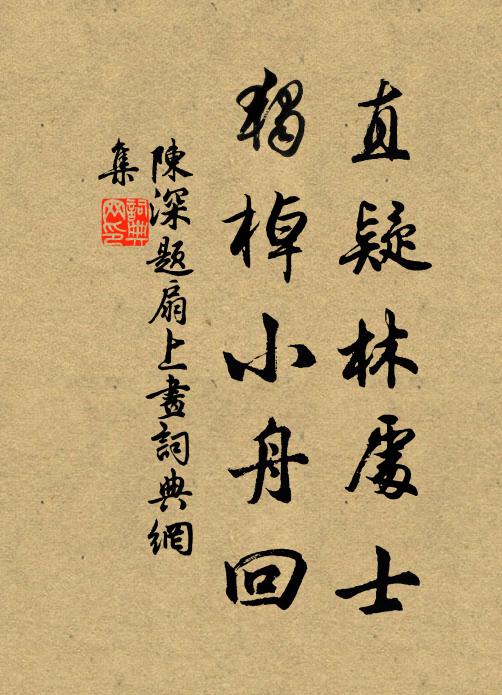 直疑林處士
獨棹小舟回
陳深題扇上畫詞典網
集
詞典網印